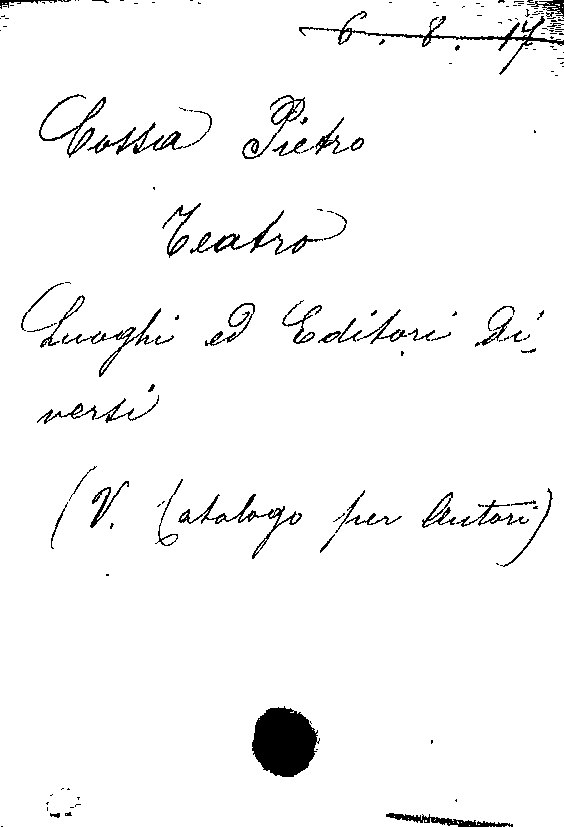 6. 8. 17
Cossa Pietro
Teatro
Luoghi ed Editori Di-
versi
(V. Catalogo per Autori)